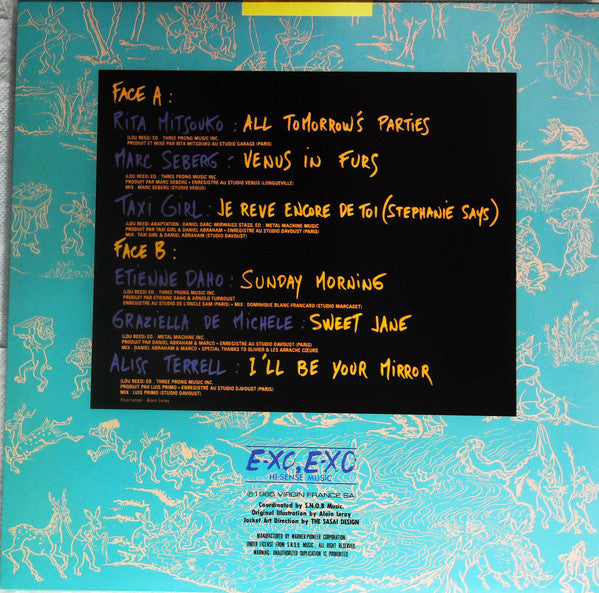 FACE A :
RITA MITSOUKO : ALL TOMORROW'S PARTIES
(LOU REED) ED : THREE PRONG MUSIC INC
PRODUIT ET MIXÉ PAR RITA MITSOUKO AU STUDIO GARAGE (PARIS)
MARC SEBERG : VENUS IN FURS
(LOU REED) ED : THREE PRONG MUSIC INC.
PRODUIT PAR MARC SEBERG • ENREGISTRE AU STUDIO VENUS (LONGUEVILLE)
MIX : MARC SEBERG (STUDIO VENUS)
TAXI GIRL : JE REVE ENCORE DE TOI (STEPHANIE SAYS)
(LOU REED) ADAPTATION : DANIEL DARC · MIRWAISS STASS, ED : METAL MACHINE MUSIC
PRODUIT PAR TAXI GIRL & DANIEL ABRAHAM • ENREGISTRÉ AU STUDIO DAVOUST (PARIS)
MIX : TAXI GIRL & DANIEL ABRAHAM (STUDIO DAVOUST)
FACE B :
ETIENNE DAHO : SUNDAY MORNING
(LOU REED) ED : THREE PRONG MUSIC INC.
PRODUIT PAR ETIENNE DAHO & ARNOLD TURBOUST
ENREGISTRÉ AU STUDIO DE L'ONCLE SAM (PARIS) • MIX : DOMINIQUE BLANC-FRANCARD (STUDIO MARCADET)
GRAZIELLA DE MICHELE : SWEET JANE
(LOU REED) ED : METAL MACHINE INC.
PRODUIT PAR DANIEL ABRAHAM & MARCO • ENREGISTRÉ AU STUDIO DAVOUST (PARIS)
MIX : DANIEL ABRAHAM & MARCO • SPECIAL THANKS TO OLIVIER & LES ARRACHE CŒURS
ALISS TERRELL : I'LL BE YOUR MIRROR
(LOU REED) ED : THREE PRONG MUSIC INC
PRODUIT PAR LUIS PRIMO • ENREGISTRÉ AU STUDIO DAVOUST (PARIS)
MIX : LUIS PRIMO (STUDIO DAVOUST)
Illustration : Alain Leray
E-XC, E-XC
HI-SENSE MUSIC
℗1985 VIRGIN FRANCE SA.
Coordinated by S.N.O.B Music.
Original Illustration by Alain Leray
Jacket Art Direction by THE SASAI DESIGN
MANUFACTURED BY WARNER-PIONEER CORPORATION.
UNDER LICENSE FROM S.N.O.B. MUSIC. ALL RIGHT RESERVED.
WARNING. UNAUTHORIZED DUPLICATION IS PROHIBITED.